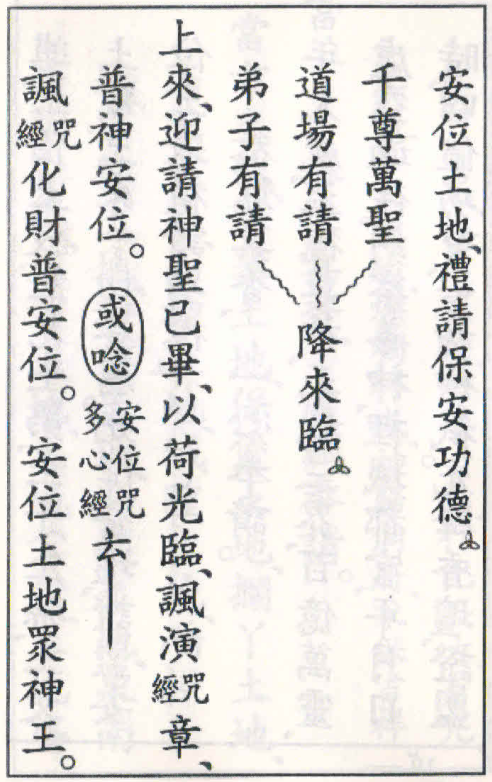 安位土地、禮請保安功德
千尊萬聖
道場有請
弟子有請
降來臨
上來、迎請神聖已畢、以荷光臨、諷演經咒章、
普神安位。或唸安位咒多心經云
諷經咒化財普安位。安位土地眾神王。